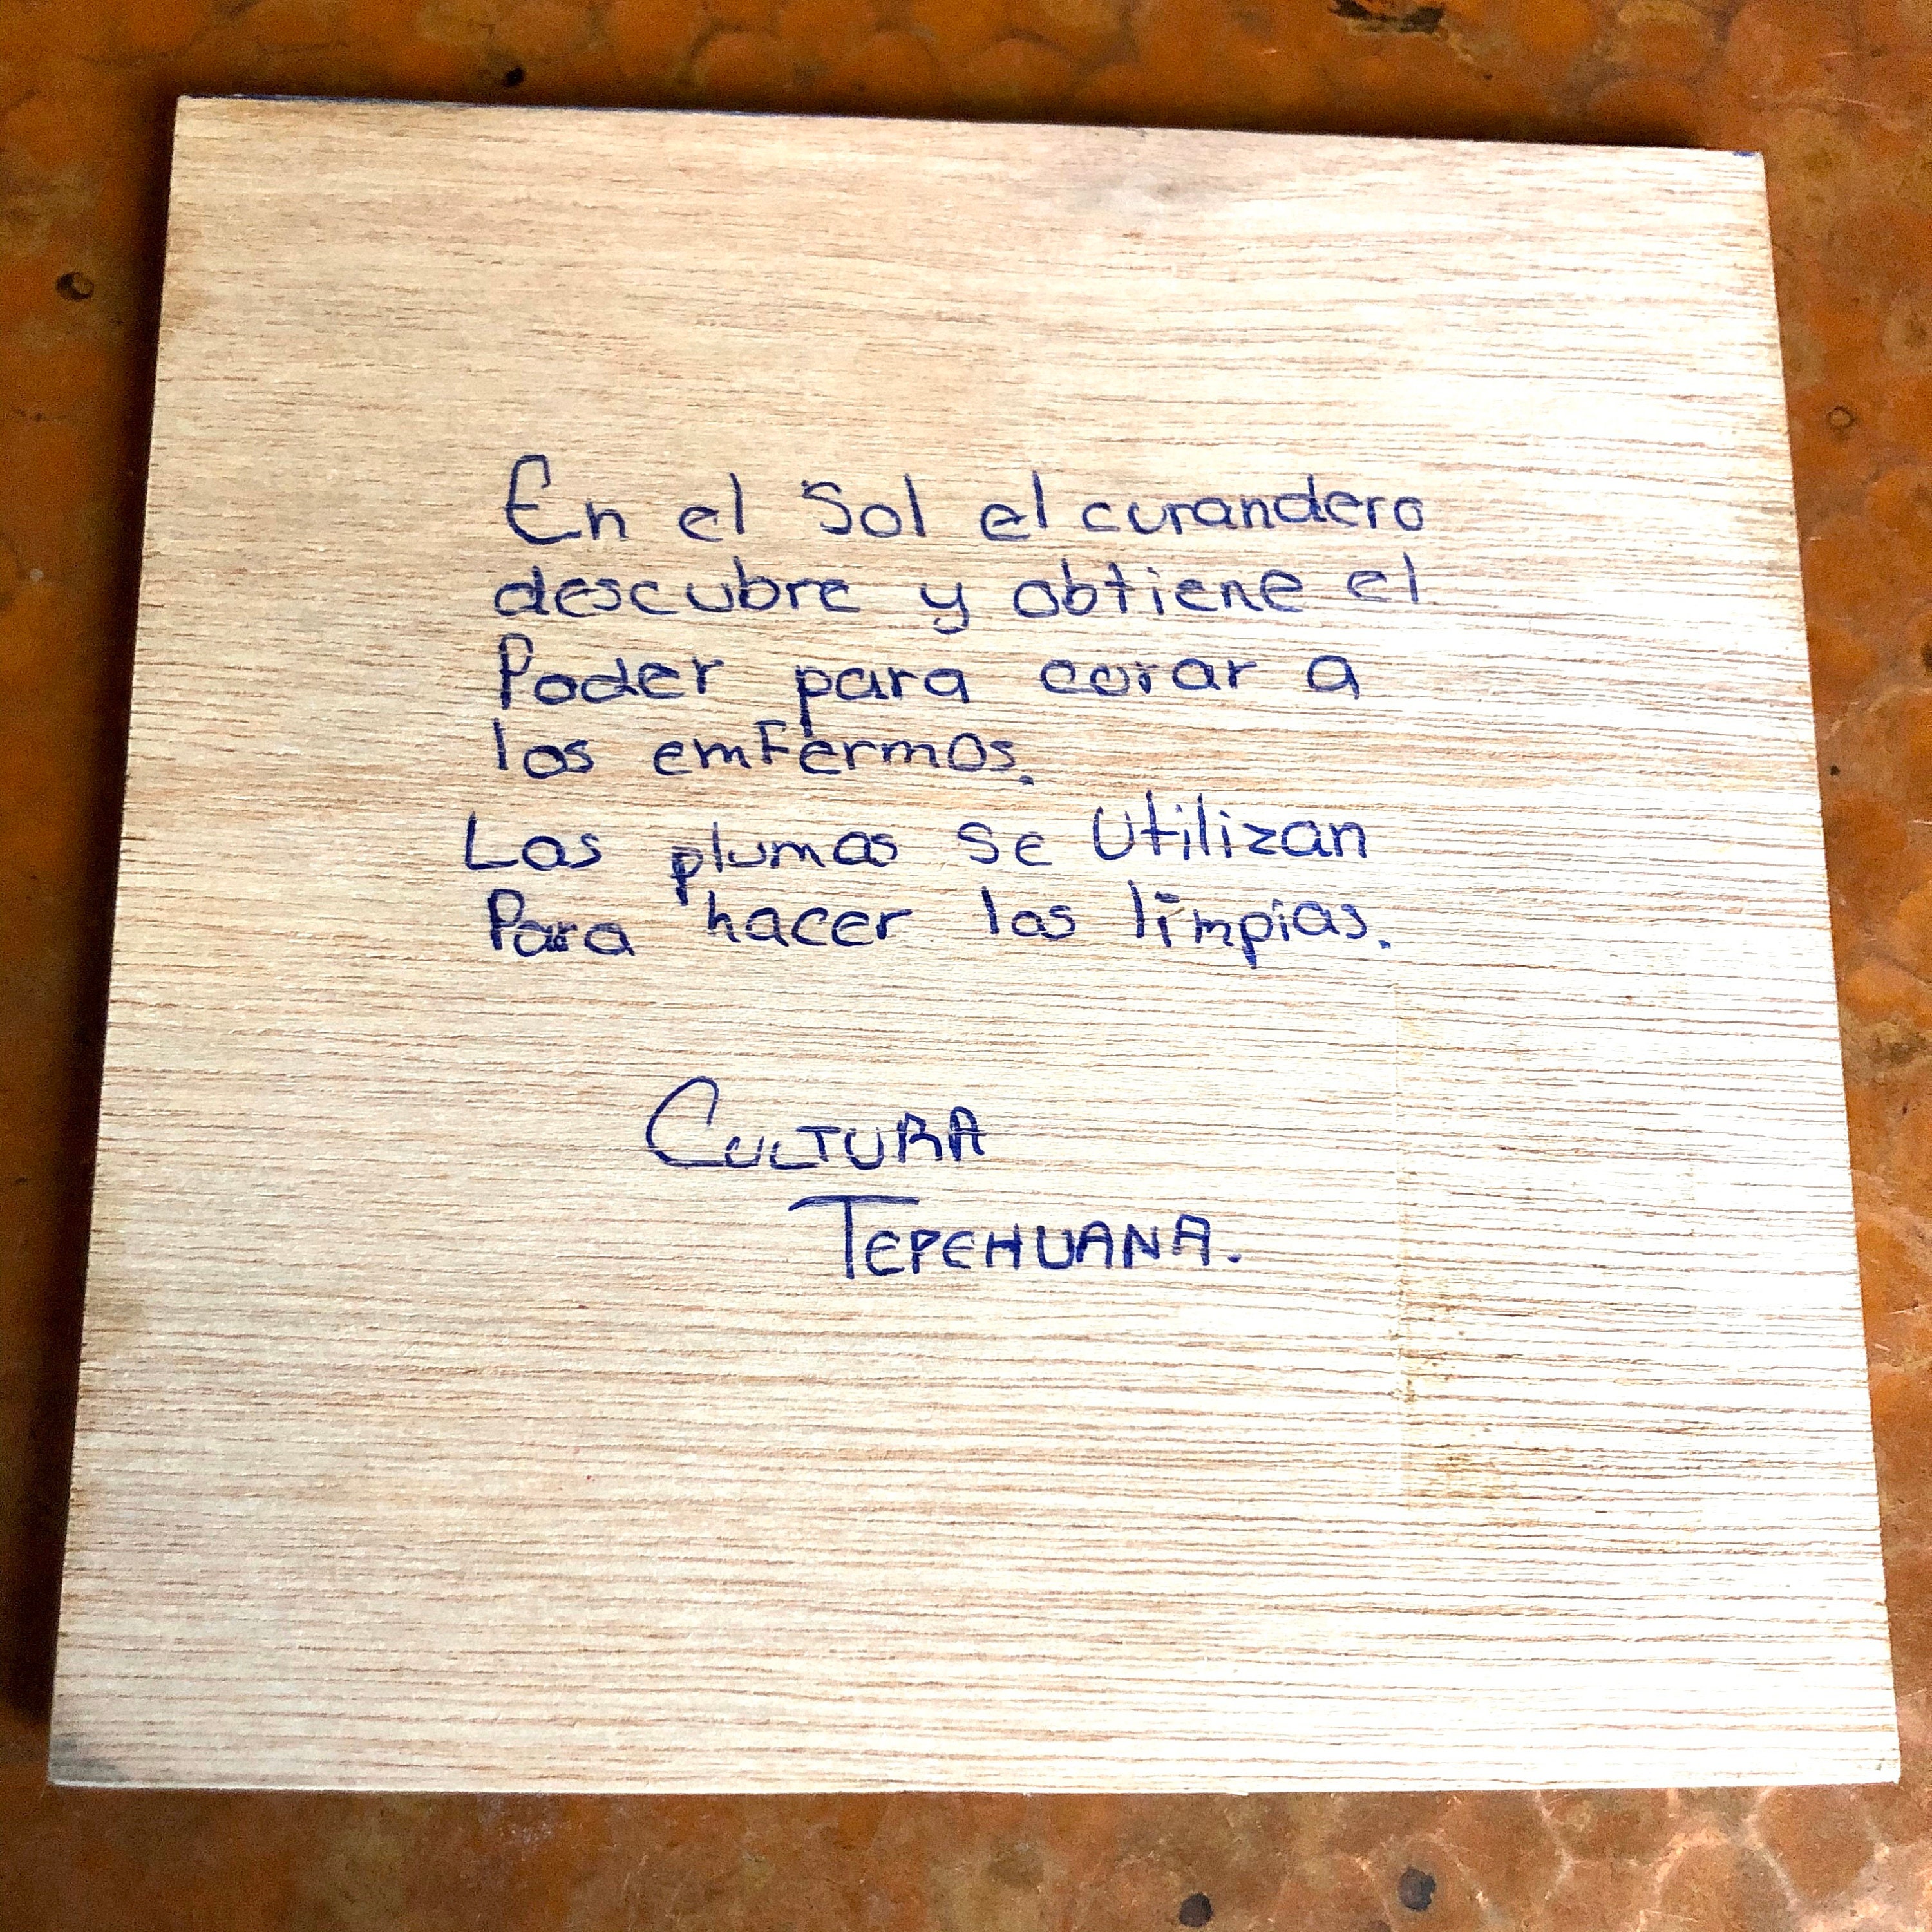 En el Sol el curandero
descubre y obtiene el
Poder para curar a
los emfermos.
Las plumas se Utilizan
Para hacer las limpias.
CULTURA
TEPEHUANA.